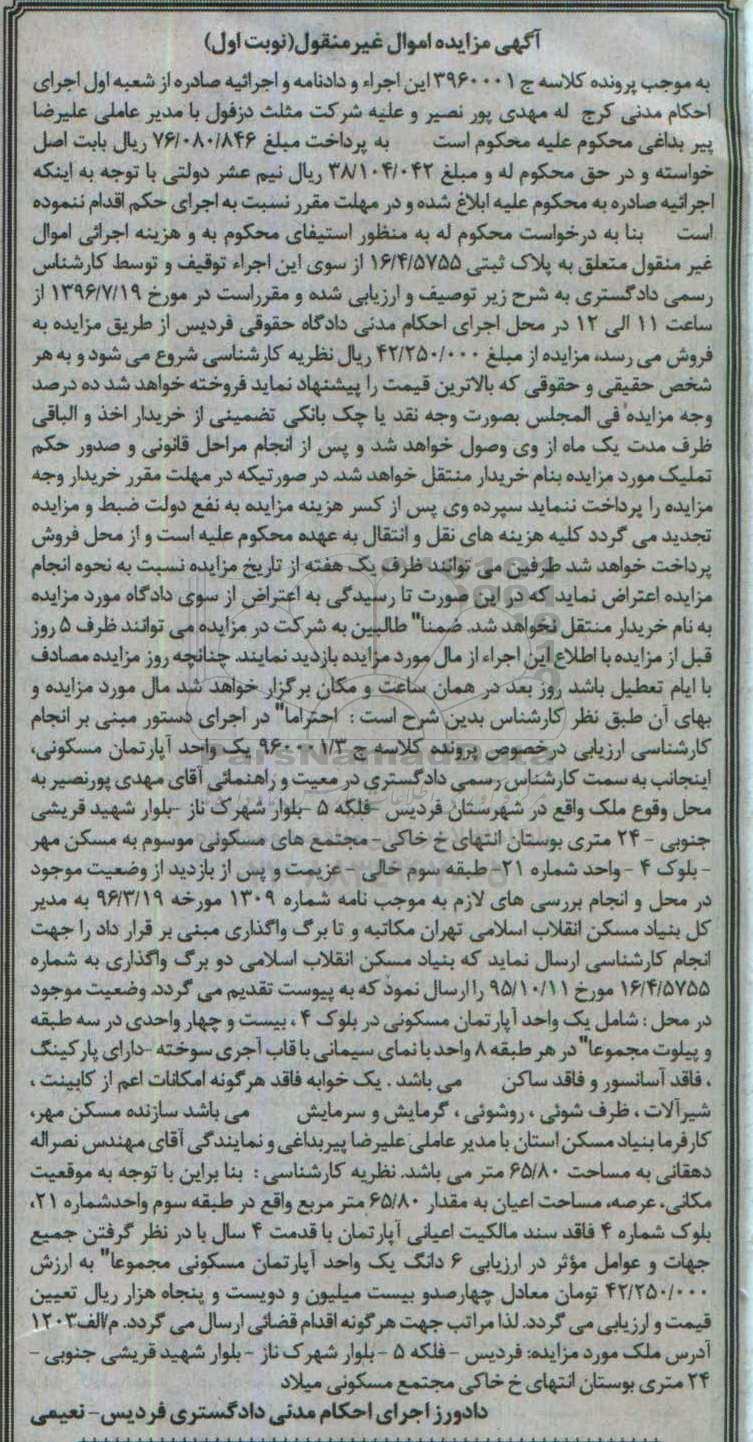 آگهی مزایده اموال غیرمنقول(نوبت اول)
به موجب پرونده کلاسه ج ۳۹۶۰۰۰۱ این اجراء و دادنامه و اجرائیه صادره از شعبه اول اجرای
احکام مدنی کرج له مهدی پور نصیر و علیه شرکت مثلث دزفول با مدیر عاملی علیرضا
پیر بداغی محکوم علیه محکوم است به پرداخت مبلغ ۷۶/۰۸۰/۸۴۶ ریال بابت اصل
خواسته و در حق محکوم له و مبلغ ۳۸/۱۰۴/۰۴۲ ریال نیم عشر دولتی با توجه به اینکه
اجرائیه صادره به محکوم علیه ابلاغ شده و در مهلت مقرر نسبت به اجرای حکم اقدام ننموده
است بنا به درخواست محکوم له به منظور استیفای محکوم به و هزینه اجرائی اموال
غیر منقول متعلق به پلاک ثبتی ۱۶/۴/۵۷۵۵ از سوی این اجراء توقیف و توسط کارشناس
رسمی دادگستری به شرح زیر توصیف و ارزیابی شده و مقرراست در مورخ ۱۳۹۶/۷/۱۹ از
ساعت ۱۱ الی ۱۲ در محل اجرای احکام مدنی دادگاه حقوقی فردیس از طریق مزایده به
فروش می رسد، مزایده از مبلغ ۴۲/۲۵۰/۰۰۰ ریال نظریه کارشناسی شروع می شود و به هر
شخص حقیقی و حقوقی که بالاترین قیمت را پیشنهاد نماید فروخته خواهد شد ده درصد
وجه مزایده فی المجلس بصورت وجه نقد یا چک بانکی تضمینی از خریدار اخذ و الباقی
ظرف مدت یک ماه از وی وصول خواهد شد و پس از انجام مراحل قانونی و صدور حکم
تملیک مورد مزایده بنام خریدار منتقل خواهد شد. در صورتیکه در مهلت مقرر خریدار وجه
مزایده را پرداخت ننماید سپرده وی پس از کسر هزینه مزایده به نفع دولت ضبط و مزایده
تجدید می گردد کلیه هزینه های نقل و انتقال به عهده محکوم علیه است و از محل فروش
پرداخت خواهد شد طرفین می توانند ظرف یک هفته از تاریخ مزایده نسبت به نحوه انجام
مزایده اعتراض نماید که در این صورت تا رسیدگی به اعتراض از سوی دادگاه مورد مزایده
به نام خریدار منتقل نخواهد شد. ضمنا" طالبین به شرکت در مزایده می توانند ظرف ۵ روز
قبل از مزایده با اطلاع این اجراء از مال مورد مزایده بازدید نمایند. چنانچه روز مزایده مصادف
با ایام تعطیل باشد روز بعد در همان ساعت و مکان برگزار خواهد شد مال مورد مزایده و
بهای آن طبق نظر کارشناس بدین شرح است : احتراما" در اجرای دستور مبنی بر انجام
کارشناسی ارزیابی درخصوص پرونده کلاسه ج ۹۶۰۰۰۱/۳ یک واحد آپارتمان مسکونی،
اینجانب به سمت کارشناس رسمی دادگستری در معیت و راهنمائی آقای مهدی پورنصیر به
محل وقوع ملک واقع در شهرستان فردیس -فلکه ۵ -بلوار شهرک ناز -بلوار شهید قریشی
جنوبی - ۲۴ متری بوستان انتهای خ خاکی- مجتمع های مسکونی موسوم به مسکن مهر
- بلوک ۴ - واحد شماره ۲۱- طبقه سوم خالی - عزیمت و پس از بازدید از وضعیت موجود
در محل و انجام بررسی های لازم به موجب نامه شماره ۱۳۰۹ مورخه ۹۶/۳/۱۹ به مدیر
کل بنیاد مسکن انقلاب اسلامی تهران مکاتبه و تا برگ واگذاری مبنی بر قرار داد را جهت
انجام کارشناسی ارسال نماید که بنیاد مسکن انقلاب اسلامی دو برگ واگذاری به شماره
۱۶/۴/۵۷۵۵ مورخ ۹۵/۱۰/۱۱ را ارسال نمود که به پیوست تقدیم می گردد. وضعیت موجود
در محل : شامل یک واحد آپارتمان مسکونی در بلوک ۴ ، بیست و چهار واحدی در سه طبقه
و پیلوت مجموعا" در هر طبقه ۸ واحد با نمای سیمانی با قاب آجری سوخته -دارای پارکینگ
، فاقد آسانسور و فاقد ساکن می باشد . یک خوابه فاقد هرگونه امکانات اعم از کابینت ،
شیرآلات ، ظرف شوئی ، روشوئی ، گرمایش و سرمایش می باشد سازنده مسکن مهر،
کارفرما بنیاد مسکن استان با مدیر عاملی علیرضا پیربداغی و نمایندگی آقای مهندس نصراله
دهقانی به مساحت ۶۵/۸۰ متر می باشد. نظریه کارشناسی : بنا براین با توجه به موقعیت
مکانی، عرصه، مساحت اعیان به مقدار ۶۵/۸۰ متر مربع واقع در طبقه سوم واحدشماره ۲۱،
بلوک شماره ۴ فاقد سند مالکیت اعیانی آپارتمان با قدمت ۴ سال با در نظر گرفتن جمیع
جهات و عوامل مؤثر در ارزیابی ۶ دانگ یک واحد آپارتمان مسکونی مجموعا" به ارزش
۴۲/۲۵۰/۰۰۰ تومان معادل چهارصدو بیست میلیون و دویست و پنجاه هزار ریال تعیین
قیمت و ارزیابی می گردد. لذا مراتب جهت هرگونه اقدام قضائی ارسال می گردد. م/الف۱۲۰۳
آدرس ملک مورد مزایده: فردیس - فلکه ۵ - بلوار شهرک ناز - بلوار شهید قریشی جنوبی -
۲۴ متری بوستان انتهای خ خاکی مجتمع مسکونی میلاد
دادورز اجرای احکام مدنی دادگستری فردیس- نعیمی